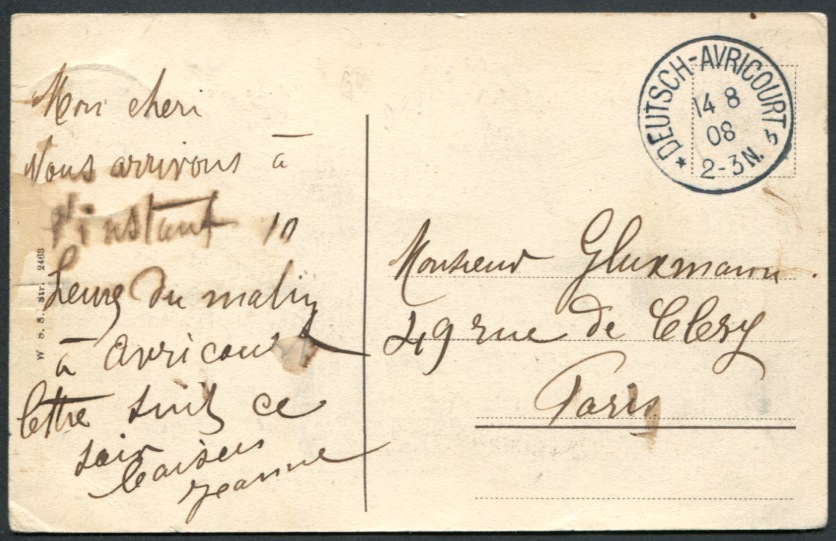 Mon cheri
Nous arrivons à
l'instant 10
heures du matin
à Avricourt
lettre suit ce
soir baisers
Jeanne
W S. S., Str. 2463
DEUTSCH-AVRICOURT
14 8
08
2-3N.
Monsieur Gluxmann
49 rue de Clery
Paris